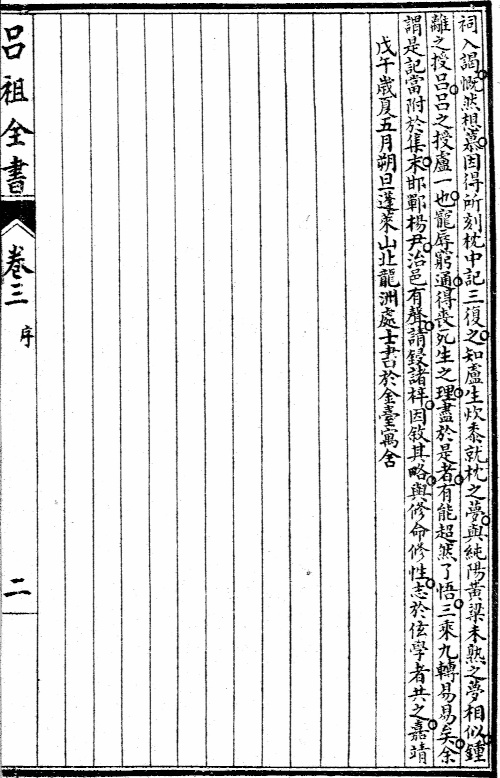 祠入謁慨然想慕因得所刻枕中記三復之知盧生炊黍就枕之夢與純陽黃粱未熟之夢相似鍾
離之授呂呂之授盧一也寵辱窮通得喪死生之理盡於是者有能超然了悟三乘九轉易易矣余
謂是記當附於集末邯鄲楊尹治邑有聲請鋟諸梓因敘其略與修命修性志於伭學者共之嘉靖
戊午歲夏五月朔旦蓬萊山北龍洲處士書於金臺寓舍
呂祖全書
卷三
序
二